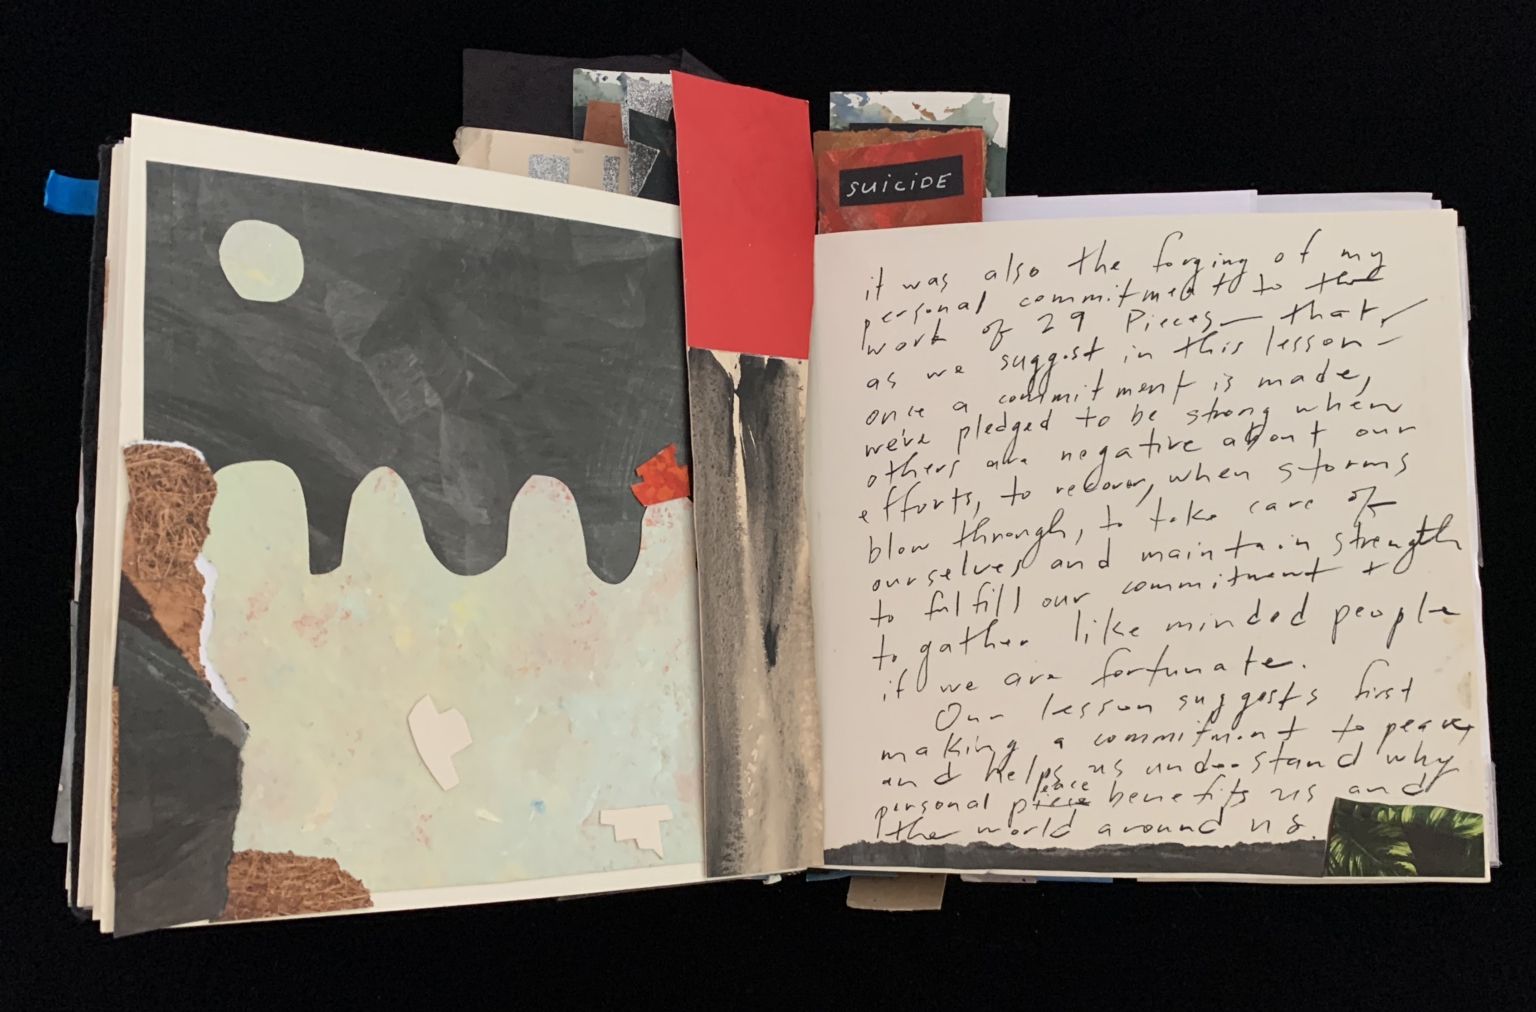 SUICIDE
it was also the forging of my
personal commitment to the
work of 29 Pieces — that,
as we suggest in this lesson —
once a commitment is made,
we're pledged to be strong when
others are negative about our
efforts, to recover, when storms
blow through, to take care of
ourselves and maintain strength
to fulfill our commitment +
to gather like minded people
if we are fortunate.
Our lesson suggests first
making a commitment to peace,
and helps us understand why
peace
personal piece benefits us and
the world around us.